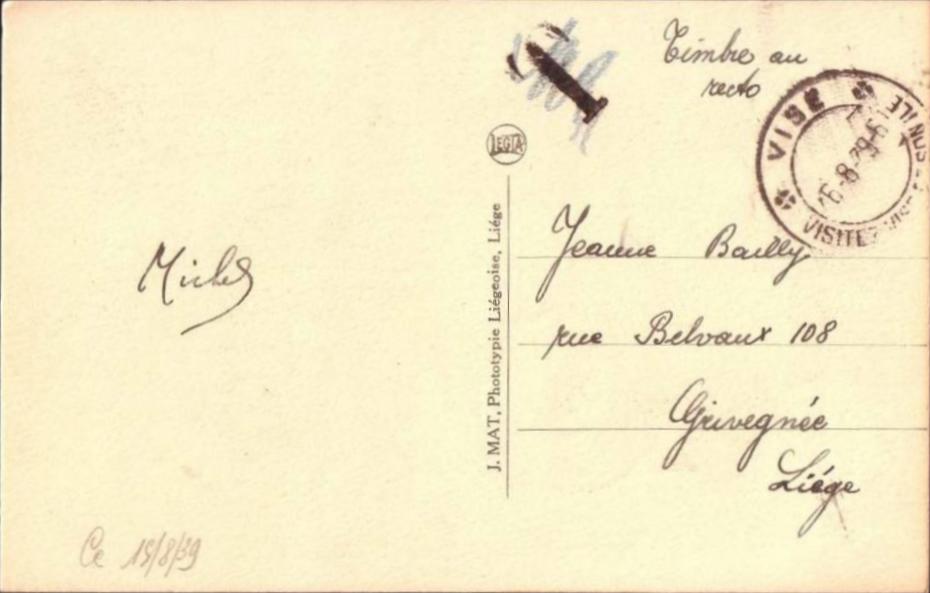 Timbre au
recto
T
LEGIA
VISÉ
VISITEZ VISÉ ET SON ILE
J. MAT, Phototypie Liégeoise, Liége
Jeanne Bailly
rue Belvaux 108
Grivegnée
Liége
Michel
Ce 15/8/39